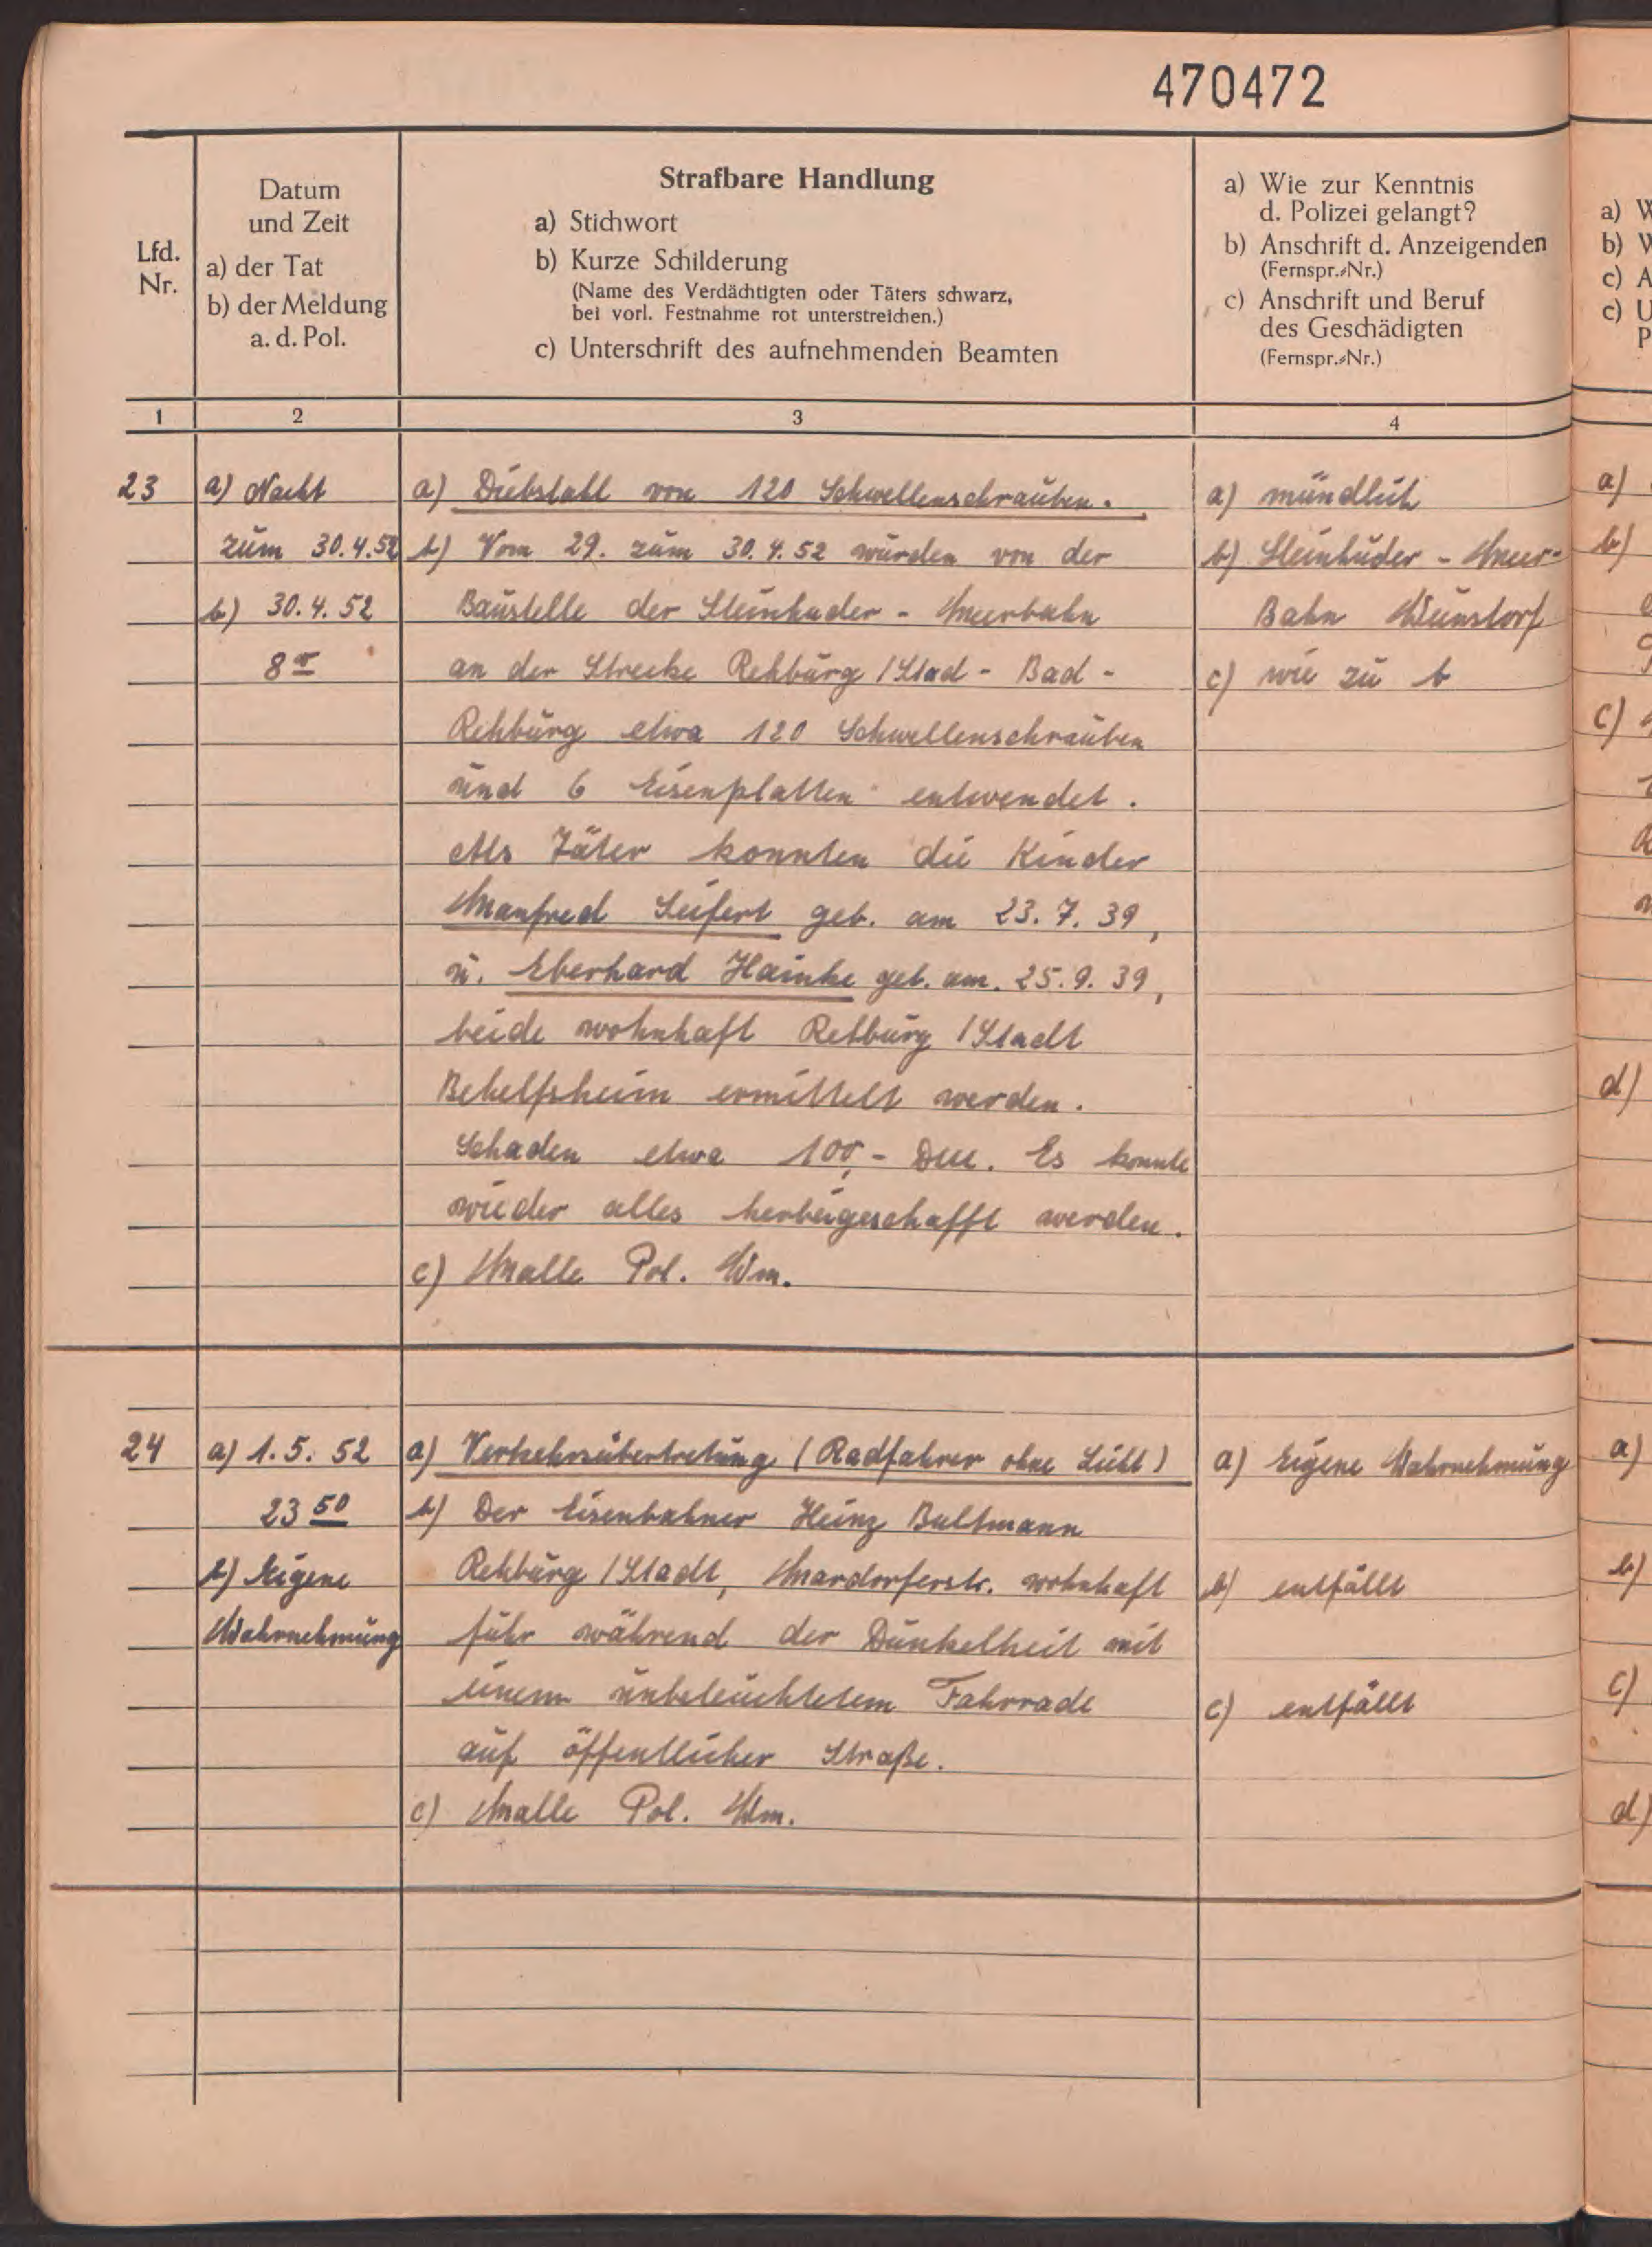 470472
Lfd.
Nr.
Datum
und Zeit
a) der Tat
b) der Meldung
a. d. Pol.
Strafbare Handlung
a) Stichwort
b) Kurze Schilderung
(Name des Verdächtigten oder Täters schwarz,
bei vorl. Festnahme rot unterstreichen.)
c) Unterschrift des aufnehmenden Beamten
a) Wie zur Kenntnis
d. Polizei gelangt?
b) Anschrift d. Anzeigenden
(Fernspr.-Nr.)
c) Anschrift und Beruf
des Geschädigten
(Fernspr.-Nr.)
1
2
3
4
23
a) Nacht
zum 30.4.52
b) 30.4.52
8 00
a) Diebstahl von 120 Schwellenschrauben.
b) Vom 29. zum 30.4.52 wurden von der
Baustelle der Steinhuder - Meerbahn
an der Strecke Rehburg /Stad - Bad -
Rehburg etwa 120 Schwellenschrauben
und 6 Eisenplatten entwendet.
Als Täter konnten die Kinder
Manfred Seifert geb. am 23.7.39,
u. Eberhard Hainke geb. am. 25.9.39,
beide wohnhaft Rehburg /Stadt
Behelfsheim ermittelt werden.
Schaden etwa 100,- DM. Es konnte
wieder alles herbeigeschafft werden.
c) Malle Pol. Wm.
a) mündlich
b) Steinhuder - Meer-
Bahn Wunstorf
c) wie zu b
24
a) 1.5.52
23 50
b) Eigene
Wahrnehmung
a) Verkehrsübertretung (Radfahrer ohne Licht)
b) Der Eisenbahner Heinz Bultmann
Rehburg /Stadt, Mardorferstr. wohnhaft
fuhr während der Dunkelheit mit
einem unbeleuchtetem Fahrrade
auf öffentlicher Straße.
c) Malle Pol. Wm.
a) Eigene Wahrnehmung
b) entfällt
c) entfällt
a)
b)
c)
c)
a)
b)
c)
d)
a)
b)
c)
d)